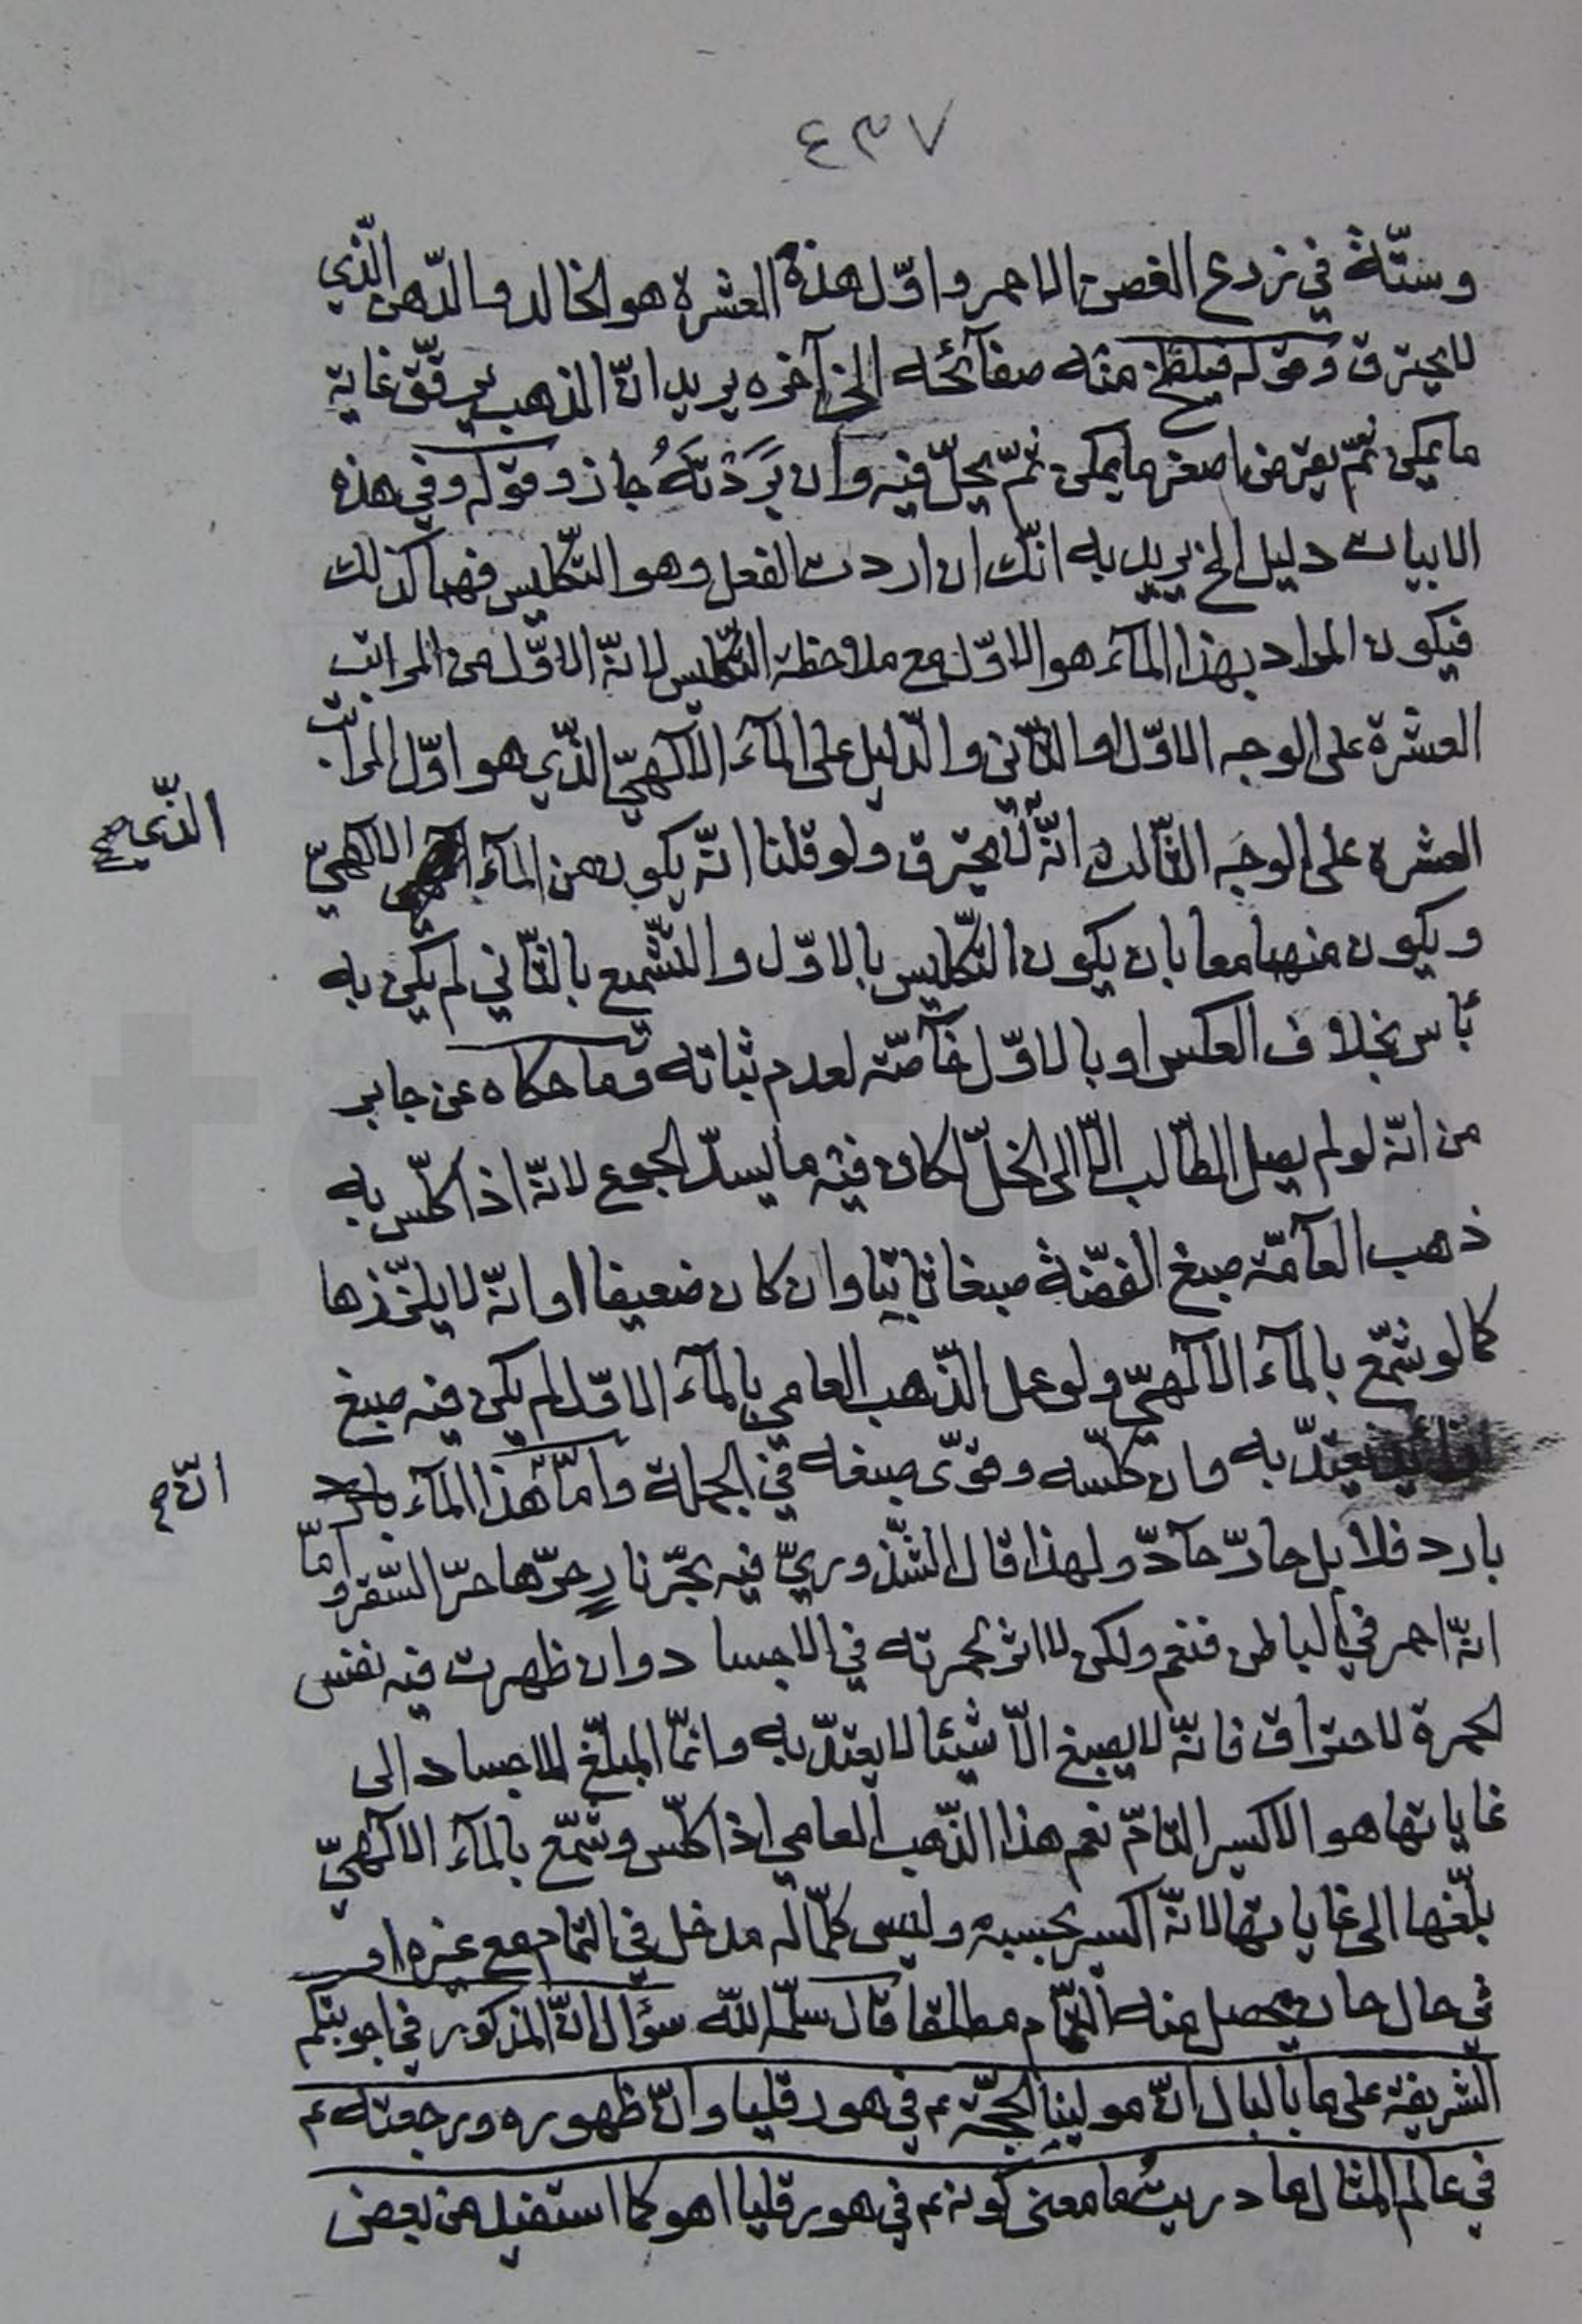 ٤٣٧
وستّة في زرع الغصن الاحمر واوّل هذه العشرة هو الخالد والدّهن الّذي
لا يحترق وقوله فيلقح منه صفآئحه الخ آخره يريد انّ الذهب يرقّق غاية
ما يمكن ثمّ يقرض اصغر ما يمكن ثمّ يحلّ فيه وان بَرَّدْتَهُ جاز وقوله وفي هذه
الابيات دليل الخ يريد به انّك ان اردت الفعل وهو التّكليس فهما كذلك
فيكون المراد بهذا المآء هو الاوّل مع ملاحظة التّكليس لانّه الاوّل من المراتب
العشرة على الوجه الاوّل والثّاني والدّليل على المآء الالٓهيّ الّذي هو اوّل المراتب
العشرة على الوجه الثّالث انّه لا يحترق ولو قلنا انّه يكون من المآء الالٓهيّ
الذّي صح
ويكون منهما معا بان يكون التّكليس بالاوّل والتّشميع بالثّاني لم يكن به
بأس بخلاف العكس او بالاوّل خآصّة لعدم ثباته وما حكاه عن جابر
من انّه لو لم يصل الطّالب الّا الى الخلّ لكان فيه ما يسدّ الجوع لانّه اذا كلّس به
ذهب العآمّة صبغ الفضّة صبغا ثابتا وان كان ضعيفا او انّه لا يلزّزها
كما لو شمّع بالمآء الالٓهيّ ولو عمل الذّهب العامي بالمآء الاوّل لم يكن فيه صبغ
يعتدّ به وان كلّسه وقوّى صبغه في الجملة وامّا هذا المآء
انّه صح
بارد فلا بل حارّ حآدّ ولهذا قال الشّذوريّ فيه بحّر نارٍ حرّها حرّ السّقر وامّا
انّه احمر في الباطن فنعم ولكن لا اثر لحمرته في الاجساد وان ظهرت فيه نفس
الحمرة لاحتراق فانّه لا يصبغ الّا شيئا لا يعتدّ به وانّما المبلّغ للاجساد الى
غاياتها هو الاكسير التّامّ نعم هذا الذّهب العامي اذا كلّس وشمّع بالمآء الالٓهيّ
بلّغها الى غاياتها لانّه اكسير بحسبه وليس كلّما له مدخل في التّمام مع غيره او
في حال حان يحصل منه التّمام مطلقا قال سلّمه اللّه سؤال انّ المذكور في اجوبتكم
الشّريفة على ما بالبال انّ مولينا الحجّة ع في هورقليا وانّ ظهوره ورجعته ع
في عالم المثال ما دريتُ ما معنى كونه ع في هورقليا اهو كما استفيد من بعض